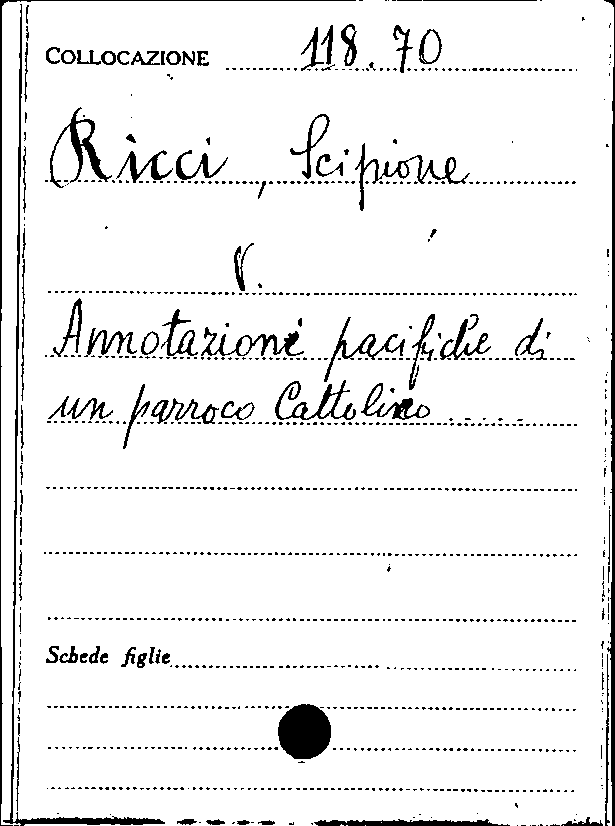 COLLOCAZIONE 118.70
Ricci, Scipione
V.
Annotazioni pacifiche di
un parroco Cattolico .....
Schede figlie